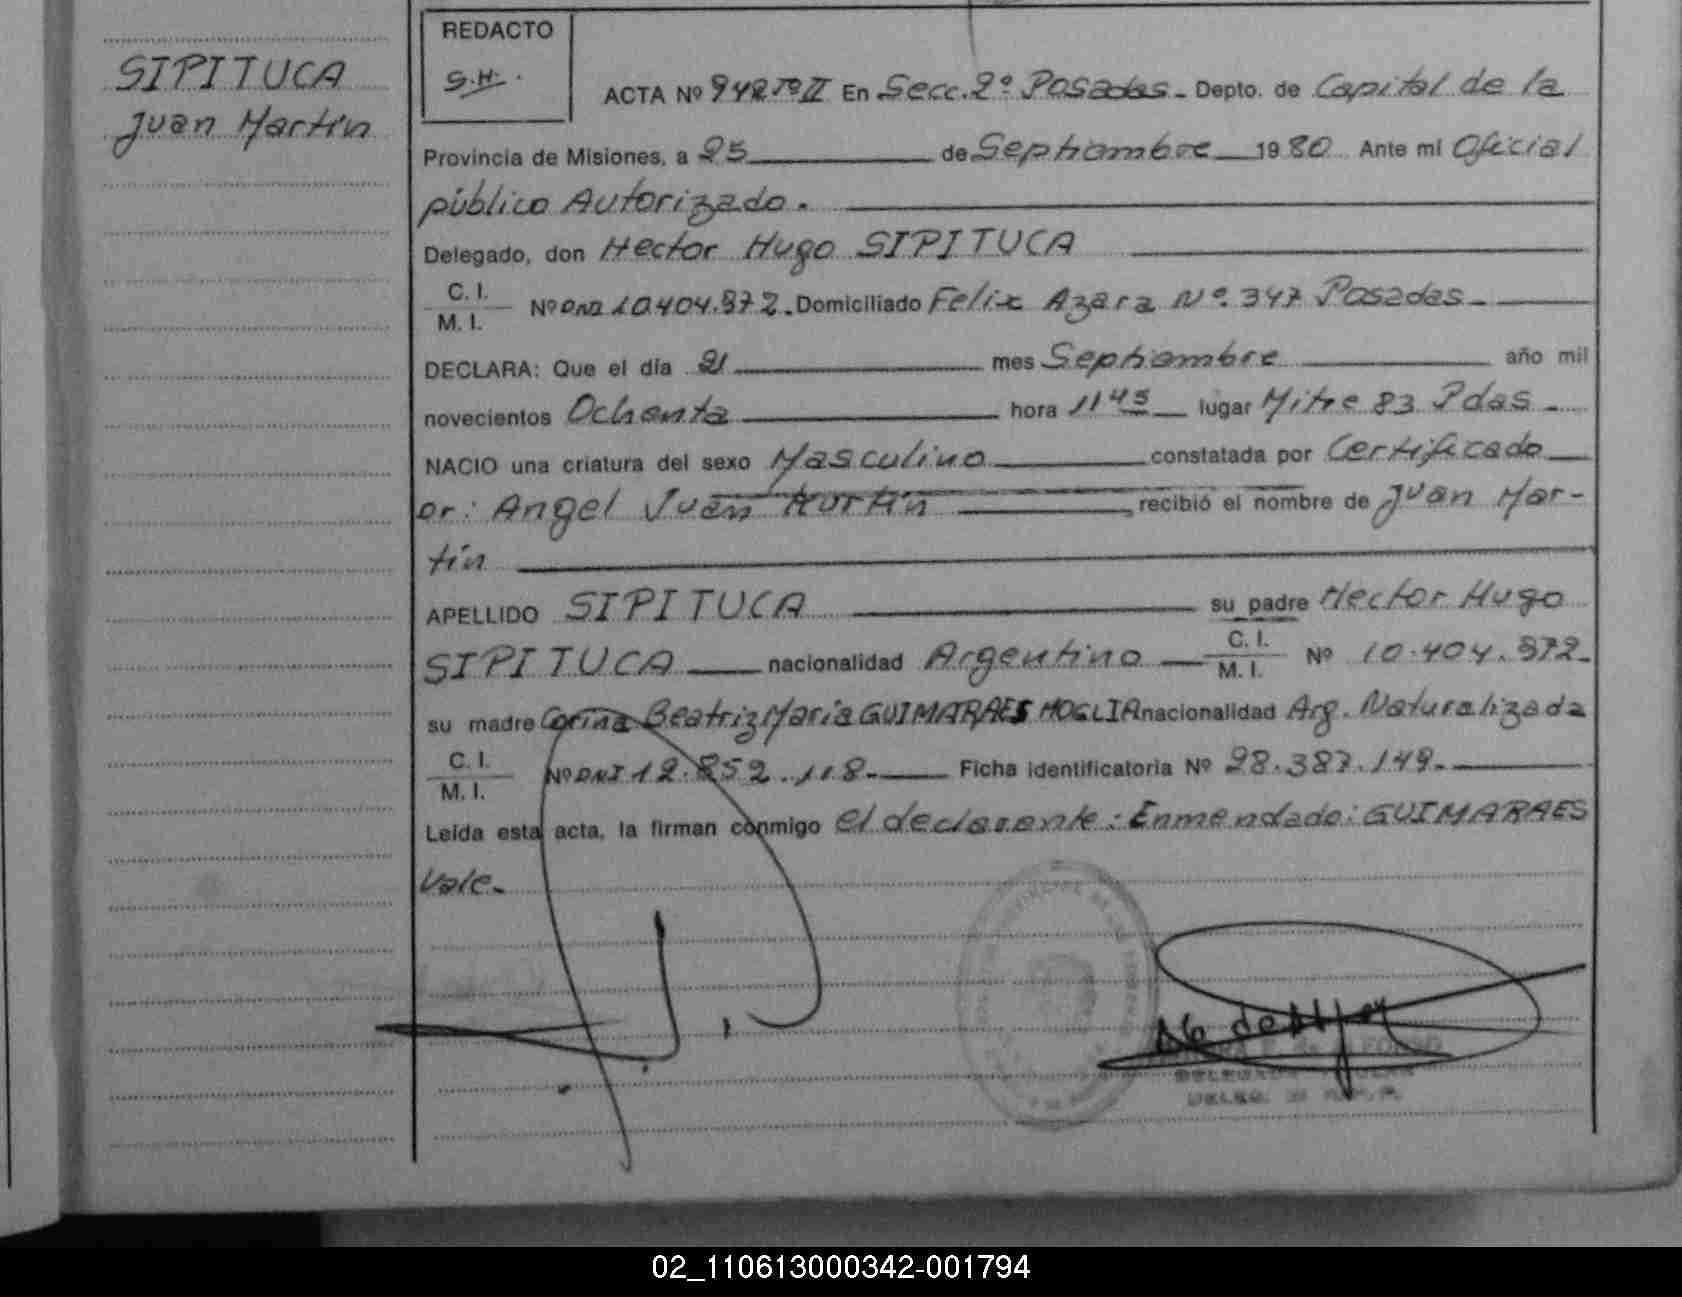 SIPITUCA
Juan Martín
REDACTO
S.H.
ACTA Nº 942 Tº II En Secc. 2º Posadas. Depto. de Capital de la
Provincia de Misiones, a 25 de Septiembre 1980 Ante mi Oficial
público Autorizado.
Delegado, don Hector Hugo SIPITUCA
C. I.
M. I.
Nº DNI 10.404.972. Domiciliado Felix Azara Nº. 347 Posadas
DECLARA: Que el día 21 mes Septiembre año mil
novecientos Ochenta hora 11 45 lugar Mitre 83 Pdas
NACIO una criatura del sexo Masculino constatada por Certificado
Dr: Angel Juan recibió el nombre de Juan Mar-
tín
APELLIDO SIPITUCA su padre Hector Hugo
SIPITUCA nacionalidad Argentino C. I.
M. I. Nº 10.404.972.
su madre Corina Beatriz María GUIMARAES MOGLIA nacionalidad Arg. Naturalizada
C. I.
M. I.
Nº DNI 12.852.118. Ficha identificatoria Nº 28.387.149.
Leída esta acta, la firman conmigo el declarante: Enmendado: GUIMARAES
Vale.
02_110613000342-001794